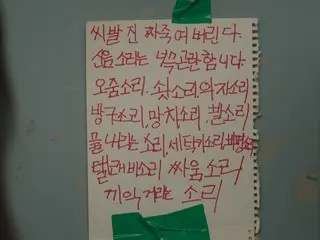 씨발 진 짜죽여 버린다.
소리는 넉극곤란합니다.
오줌소리. 쇳소리. 의자소리
방구소리, 망치소리, 칼소리
물나라는 소리, 세탁기소리,
텔레비소리 싸움소리
끼익거리는 소리